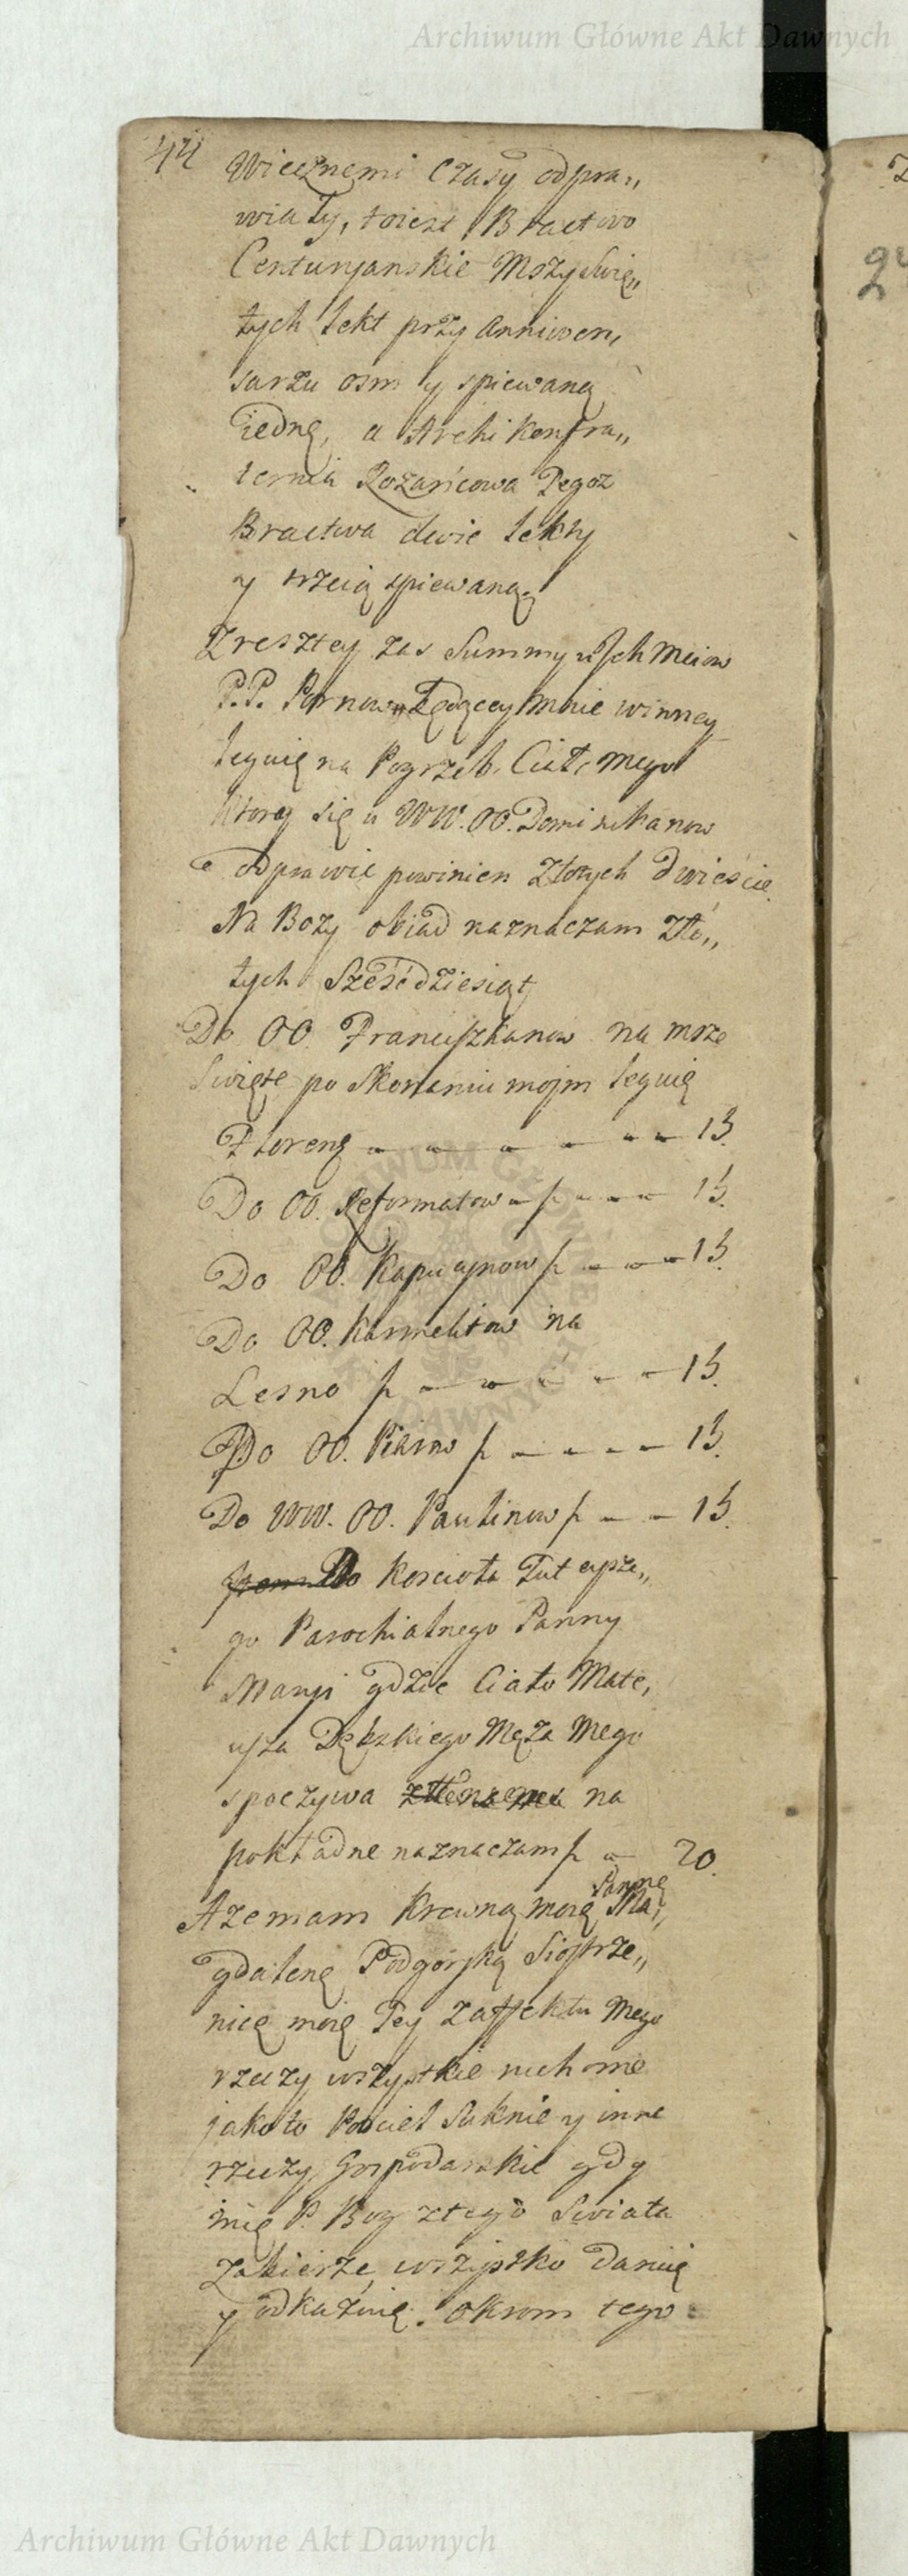 Archiwum Główne Akt Dawnych
44
Wiecznemi Czasy odpra„
wiały, toiest Bractwo
Centurjanskie Mszy Swię„
tych lekt przy anniwer„
sarzu osm y spiewaną
iedną, a Archikonfra„
ternia Rożańcowa Tegoż
Bractwa dwie lekty
y trzcią spiewaną.
Zresztey zas Summy u Jch Mciow
P.P. Będącey mnie winney
leguię na Pogrzeb Ciała mego
ktory się u WW. OO. Dominikanow
odprawic powinien Złotych dwiescie
Na Boży obiad naznaczam Zło„
tych Sześćdziesiąt
Do OO. Franciszkanow na msze
Swięte po skonaniu moim leguię
Florenę 13.
Do OO. Reformatow f 13.
Do OO. Kapucynow f 13.
Do OO. Karmelitow na
Lesno f 13.
Do OO. Piiarow f 13.
Do WW. OO. Paulinow f 13.
Do Koscioła Tuteysze„
go Parochialnego Panny
Maryi gdzie Ciało Mate„
usza Męża mego
spoczywa na
pokładne naznaczam f 20.
Aże mam krewną moię Pannę Ma„
gdalenę Podgorską Siostrze„
nicę moię Tey z affektu mego
rzeczy wszystkie ruchome
jako to Posciel Suknie y inne
rzeczy Gospodarskie gdy
mię P. Bog z tego Swiata
Zabierze, wszystko daruię
y odkazuię. Okrom tego
Archiwum Główne Akt Dawnych